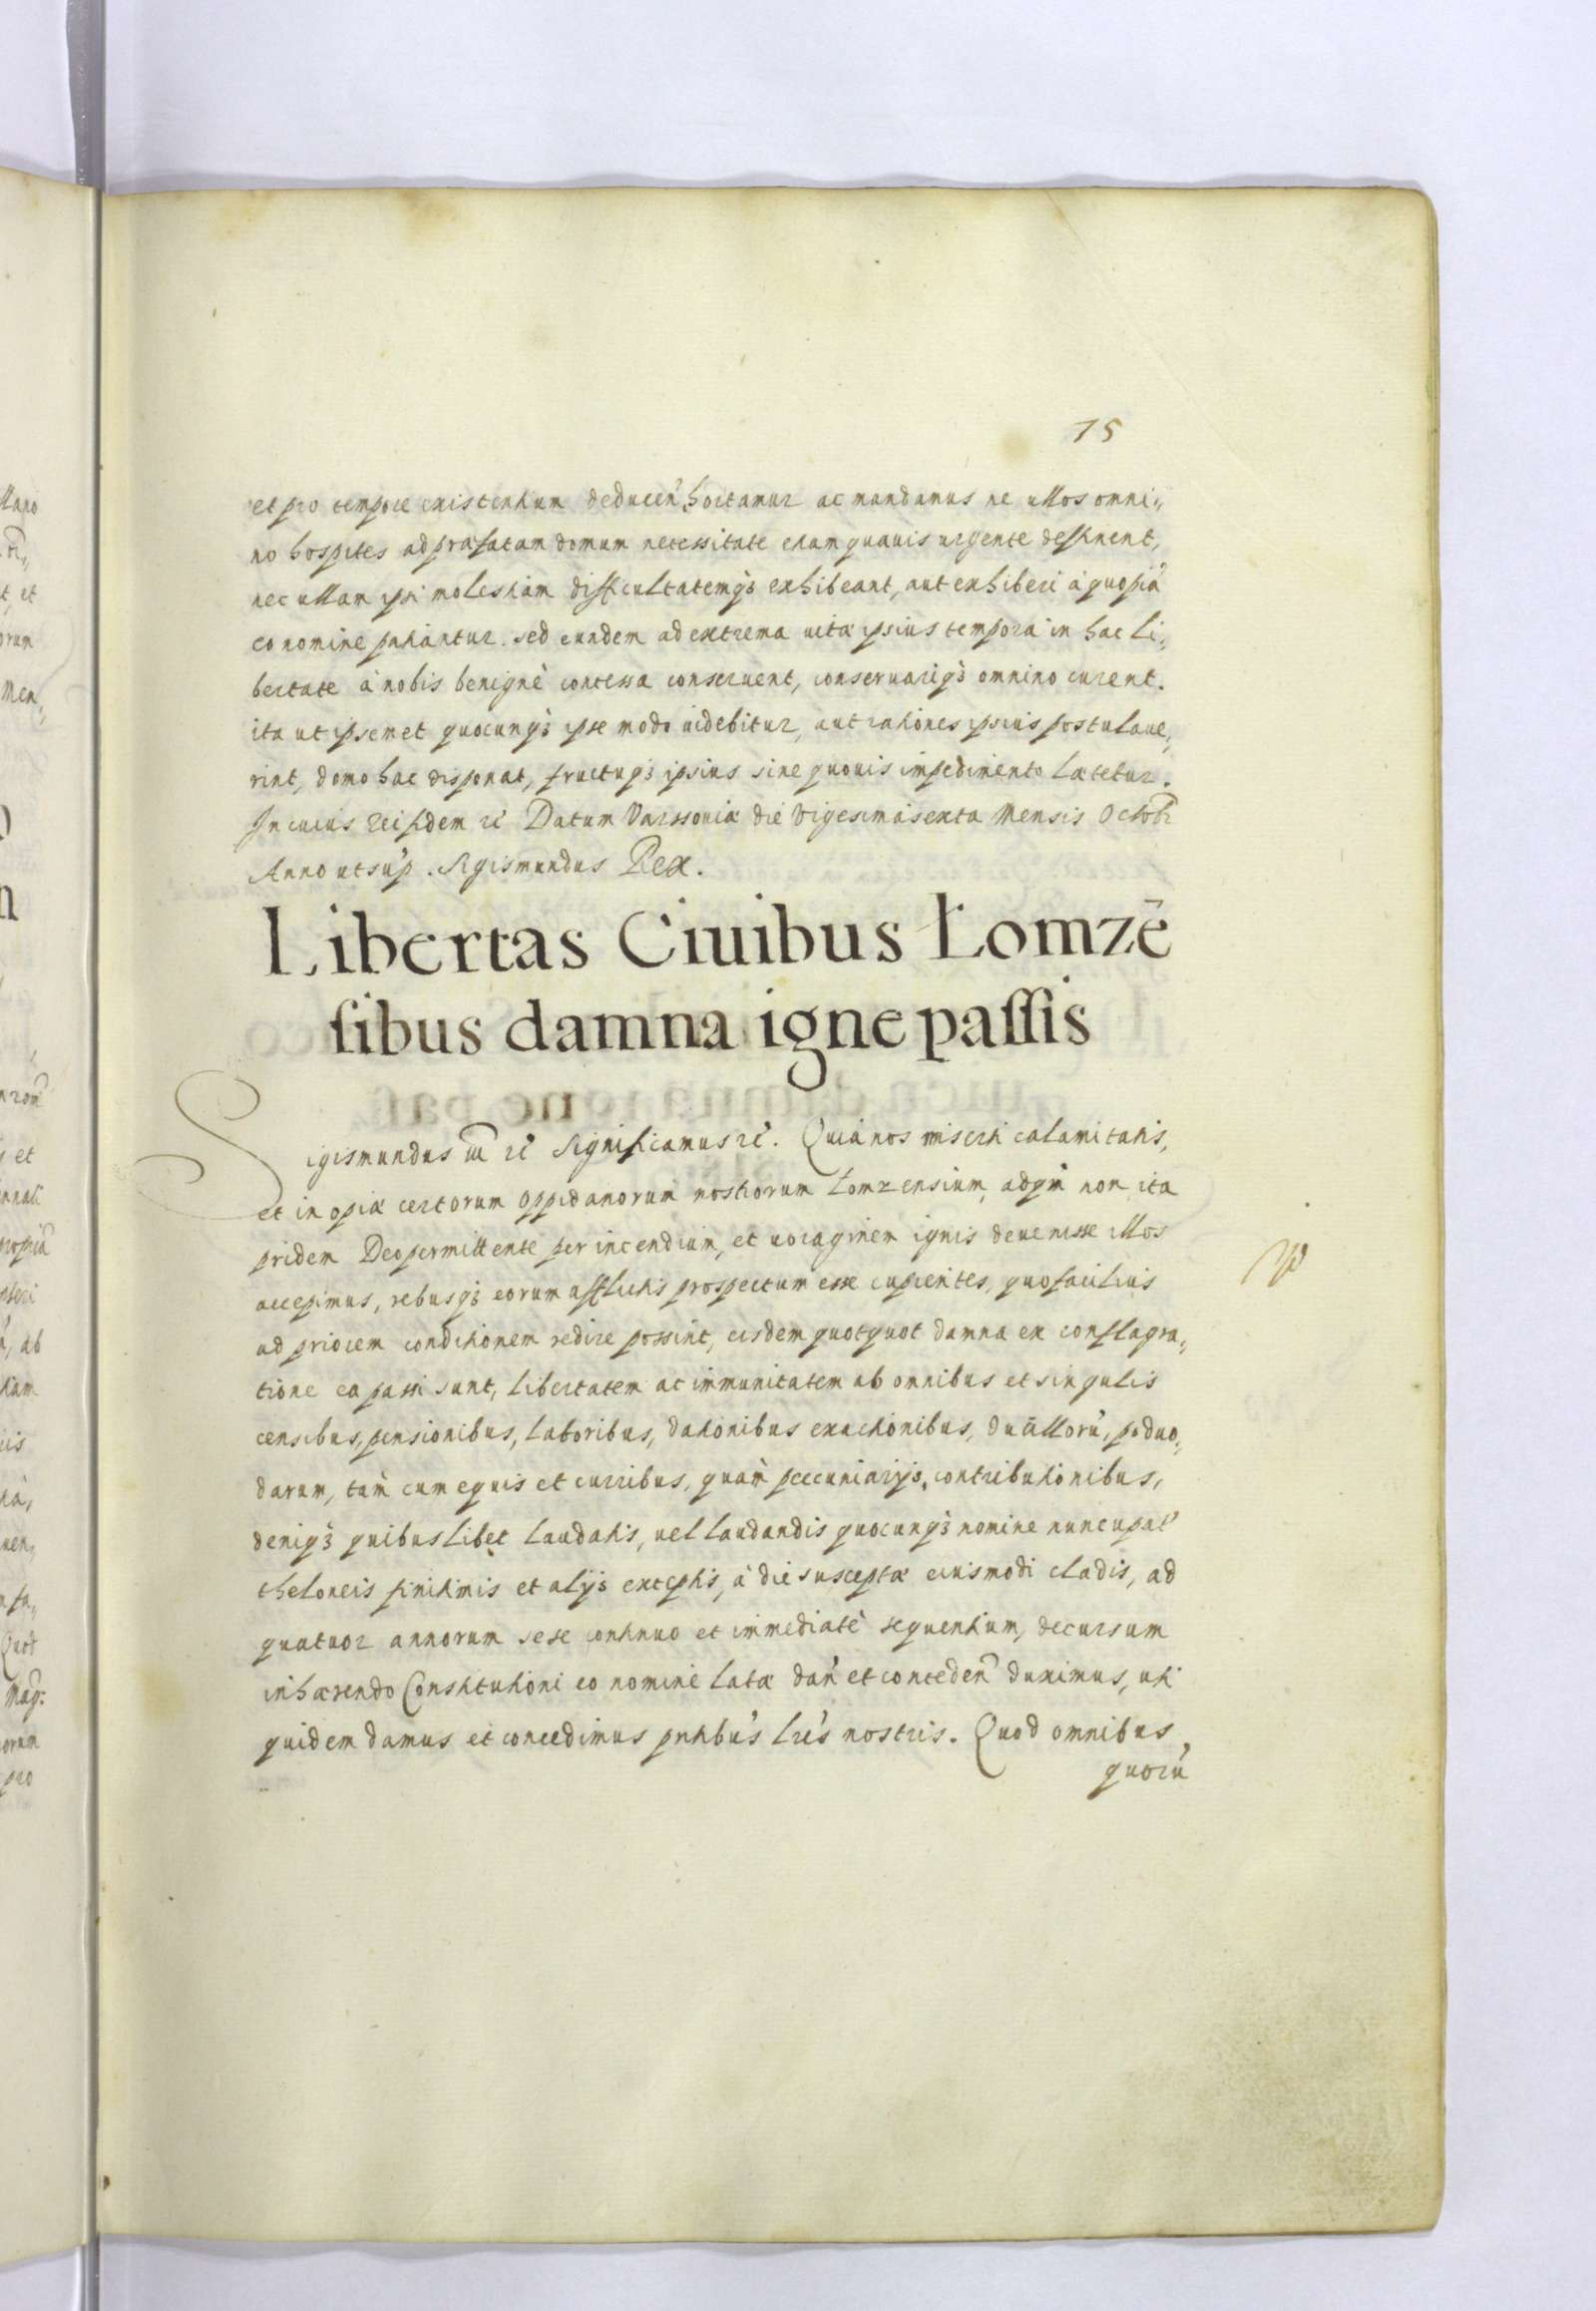 75
et pro tempore existentium deducen̄, hortamur ac mandamus ne ullos omni„
no hospites ad præfatam domum necessitate etiam quavis urgente destinent,
nec ullam ipsi molestiam difficultatemq₃ exhibeant, aut exhiberi à quopiā
eo nomine patiantur. sed eundem ad extrema vitæ ipsius tempora in hac li„
bertate à nobis benignè concessa conservent, conservariq₃ omnino curent.
ita ut ipsemet quocunq₃ ipse modo videbitur, aut rationes ipsius postulave„
rint, domo hac disponat, fructuq₃ ipsius sine quovis impedimento lætetur.
In cuius rei fidem rc̄ Datum Varssoviæ die Vigesima sexta Mensis Octobr̄
Anno ut sup̄. Sigismundus Rex.
Libertas Ciuibus Łomzē
ſibus damna igne paſſis
Sigismundus iii rc̄ Significamus rc̄. Quia nos miserti calamitatis,
et inopiæ certorum oppidanorum nostrorum Łomzensium, ad qm̄ non ita
pridem Deo permittente per incendium, et voraginem ignis devenisse illos
accepimus, rebusq₃ eorum afflictis prospectum esse cupientes, quo facilius
ad priorem conditionem redire possint, eisdem quotquot damna ex conflagra„
tione ea passi sunt, libertatem ac immunitatem ab omnibus et singulis
censibus, pensionibus, laboribus, dationibus exactionibus, duāllorū, poduo„
darum, tam̄ cum equis et curribus, quam̄ pecuniarijs, contributionibus,
deniq₃ quibuslibet laudatis, vel laudandis quocunq₃ nomine nuncupat̄
theloneis finitimis et alijs exceptis, à die susceptæ eiusmodi cladis, ad
quatuor annorum sese continuo et immediatè sequentium, decursum
inhærendo Constitutioni eo nomine latæ dan̄ et conceden̄ duximus, uti
quidem damus et concedimus pn̄tibus lrēs nostris. Quod omnibus,
quorū